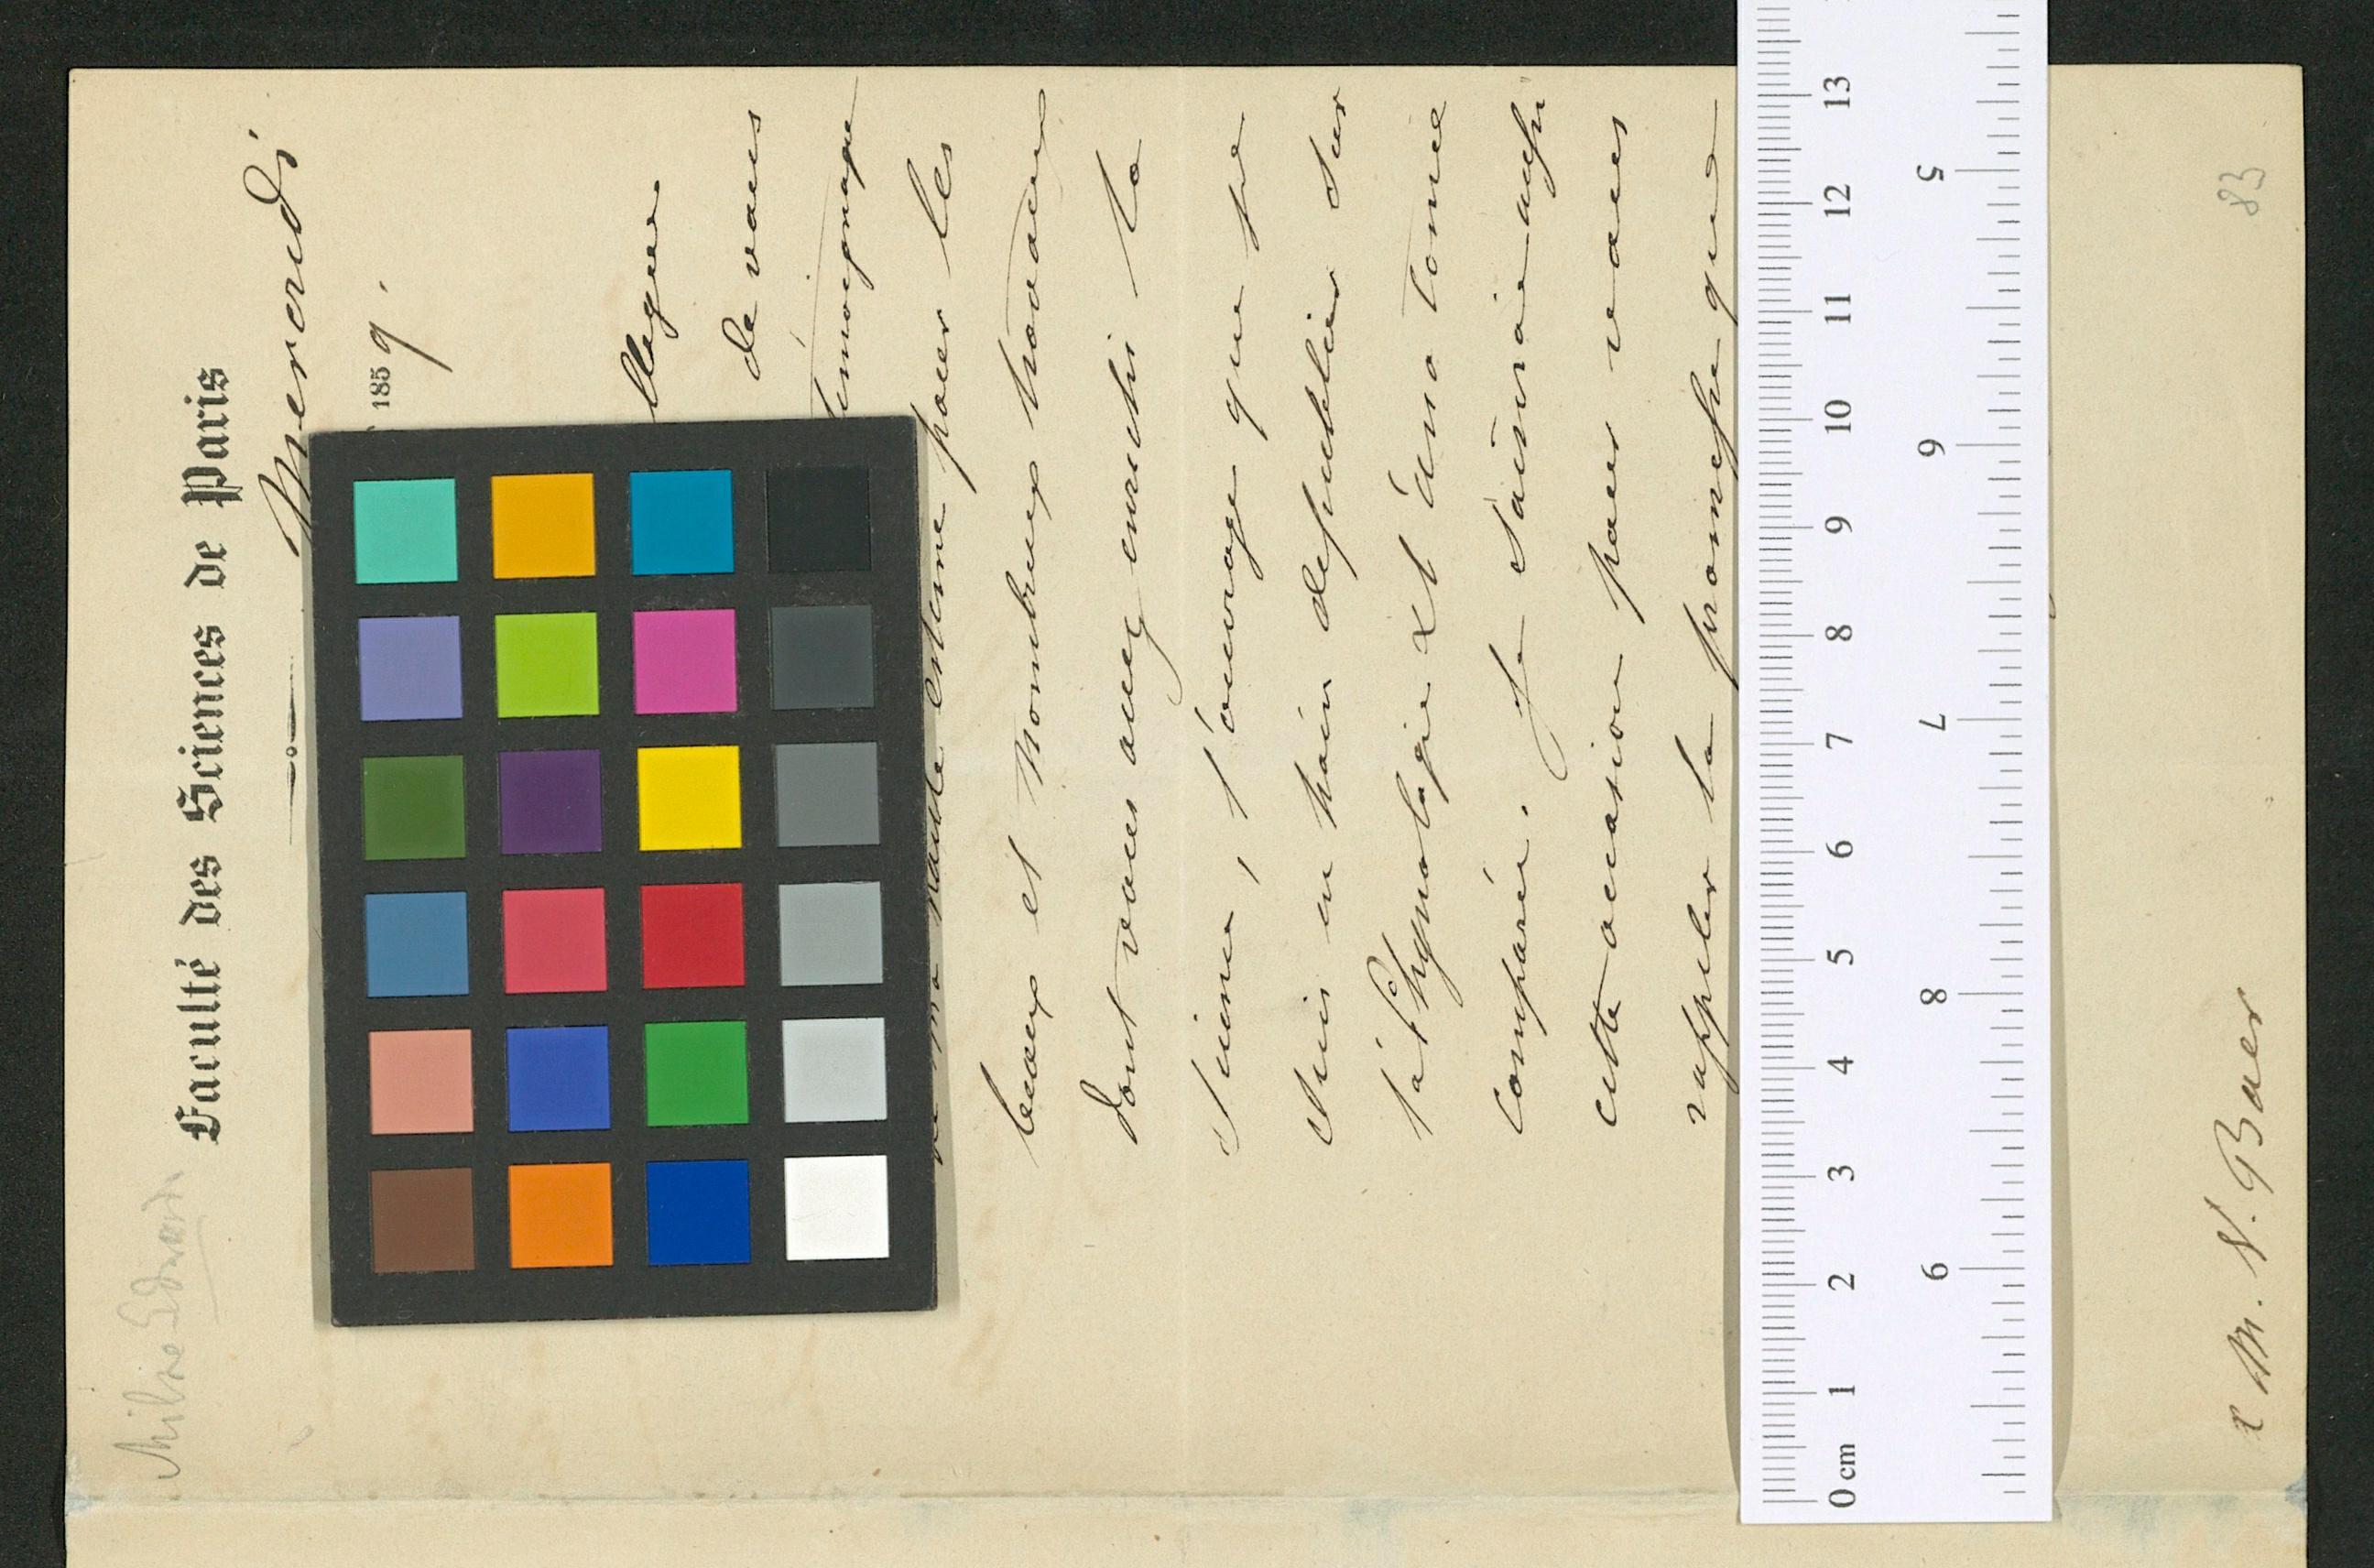 Milne Edwards
Faculté des Sciences de Paris
Mercredi
1859.
llegue
de vous
témoignage
haute estime pour les
beaux et nombreux travaux
dont vous avez enrichi la
science, l'ouvrage que je
suis en train de publier sur
la Physiologie et l'anatomie
comparée. Je saisirai aussi
cette occasion pour vous
rappeler la promesse que
x M. V. Baer
83
0 cm 1 2 3 4 5 6 7 8 9 10 11 12 13
5 6 7 8 9